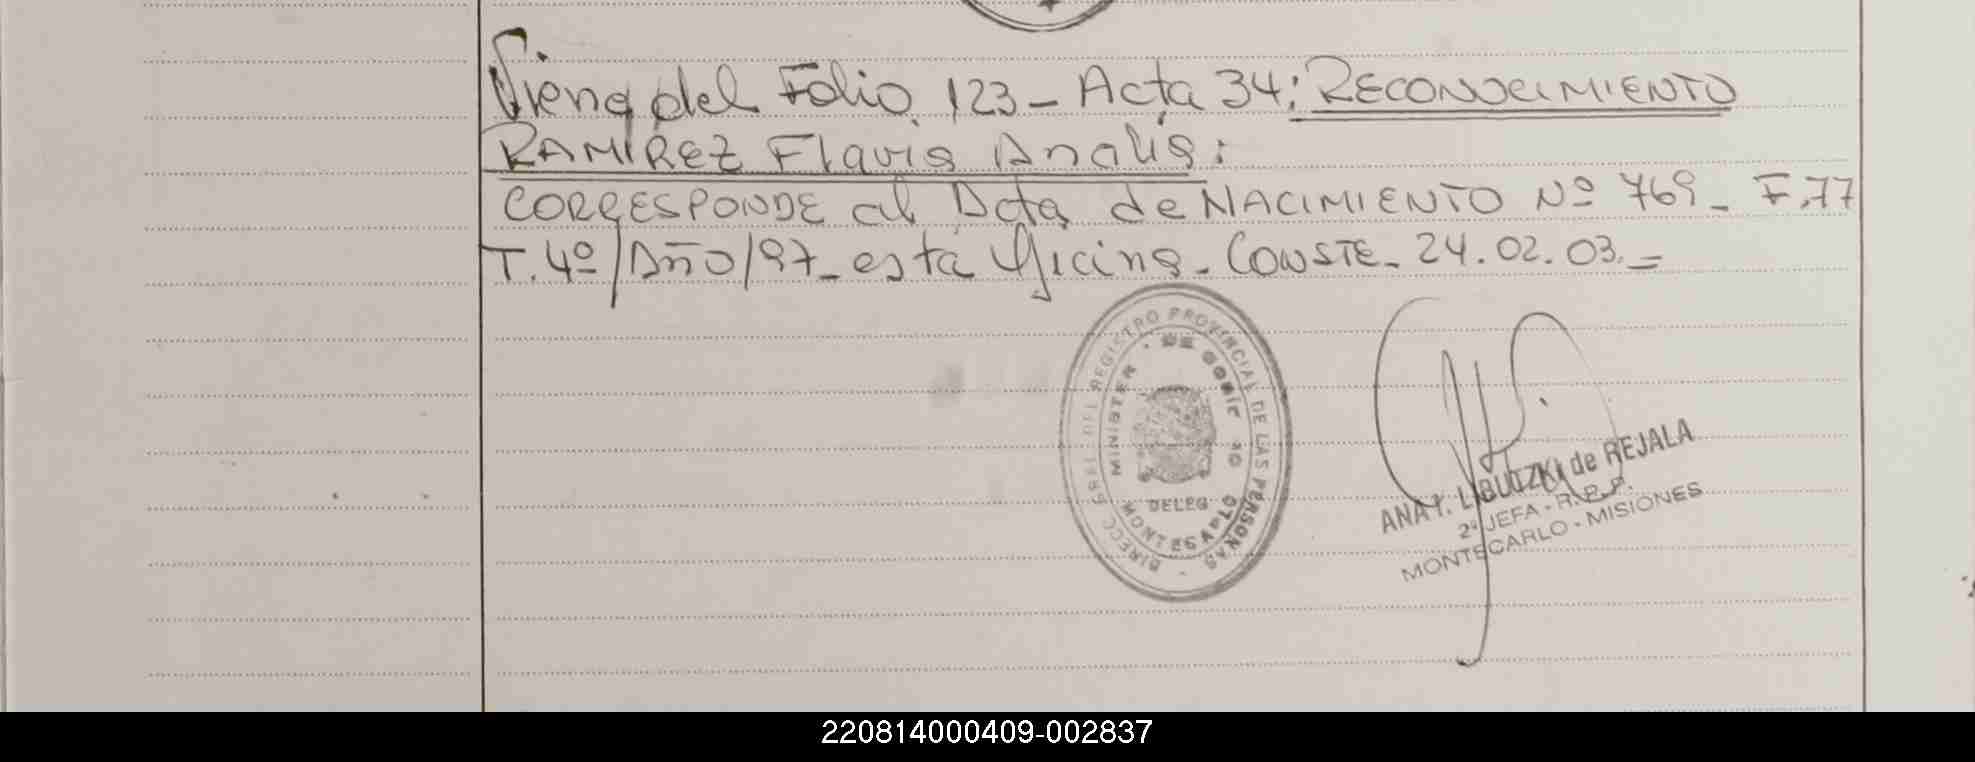 Viene del Folio 123 - Acta 34: RECONOCIMIENTO
RAMIREZ Flavia Analía:
CORRESPONDE al Acta de NACIMIENTO Nº 769 - F.77
T. 4º/Año/97 - esta Oficina. CONSTE - 24.02.03.-
DIRECC. GRAL. DEL REGISTRO PROVINCIAL DE LAS PERSONAS -
MINISTER DE GOBIE NO
DELEG
MONTECARLO
ANA de REJALA
2ª JEFA - R.P.P.
MONTECARLO - MISIONES
220814000409-002837